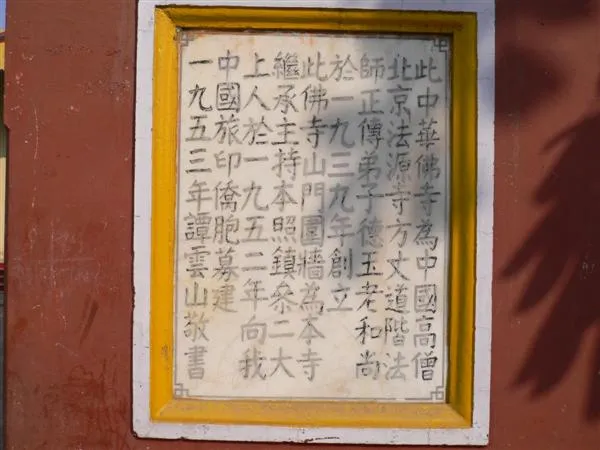 此中華佛寺為中國高僧
北京法源寺方丈道階法
師正傳弟子德玉老和尚
於一九三九年創立
此佛寺山門圍牆為本寺
繼承主持本照鎮參二大
上人於一九五二年向我
中國旅印僑胞募建
一九五三年譚雲山敬書